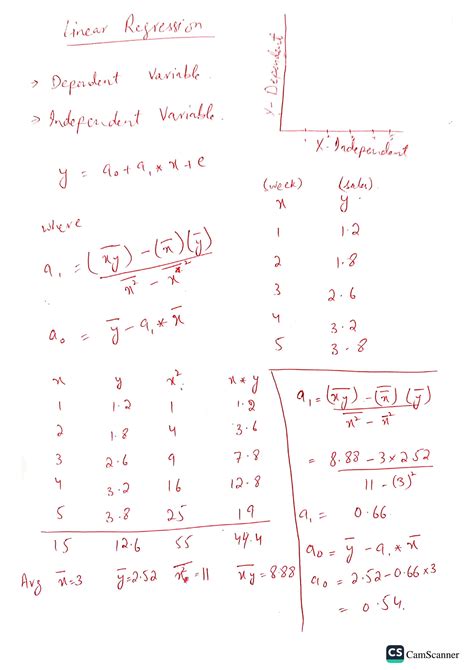 Linear Regression
Y- Dependent
X- Independent
→ Dependent Variable.
→ Independent Variable.
y = a₀ + a₁ * x + e
where
a₁ = (x̅y̅) − (x̅)(y̅) / x̅²̅ − x̅²
a₀ = y̅ − a₁ * x̅
(week) (sales)
x y
1 1.2
2 1.8
3 2.6
4 3.2
5 3.8
x y x² x * y
1 1.2 1 1.2
2 1.8 4 3.6
3 2.6 9 7.8
4 3.2 16 12.8
5 3.8 25 19
15 12.6 55 44.4
Avg x̅=3 y̅=2.52 x̅²̅=11 x̅y̅=8.88
a₁ = (x̅y̅) − (x̅)(y̅) / x̅²̅ − x̅²
= 8.88 − 3 × 2.52 / 11 − (3)²
a₁ = 0.66
a₀ = y̅ − a₁ * x̅
a₀ = 2.52 − 0.66 × 3
= 0.54.
CS CamScanner